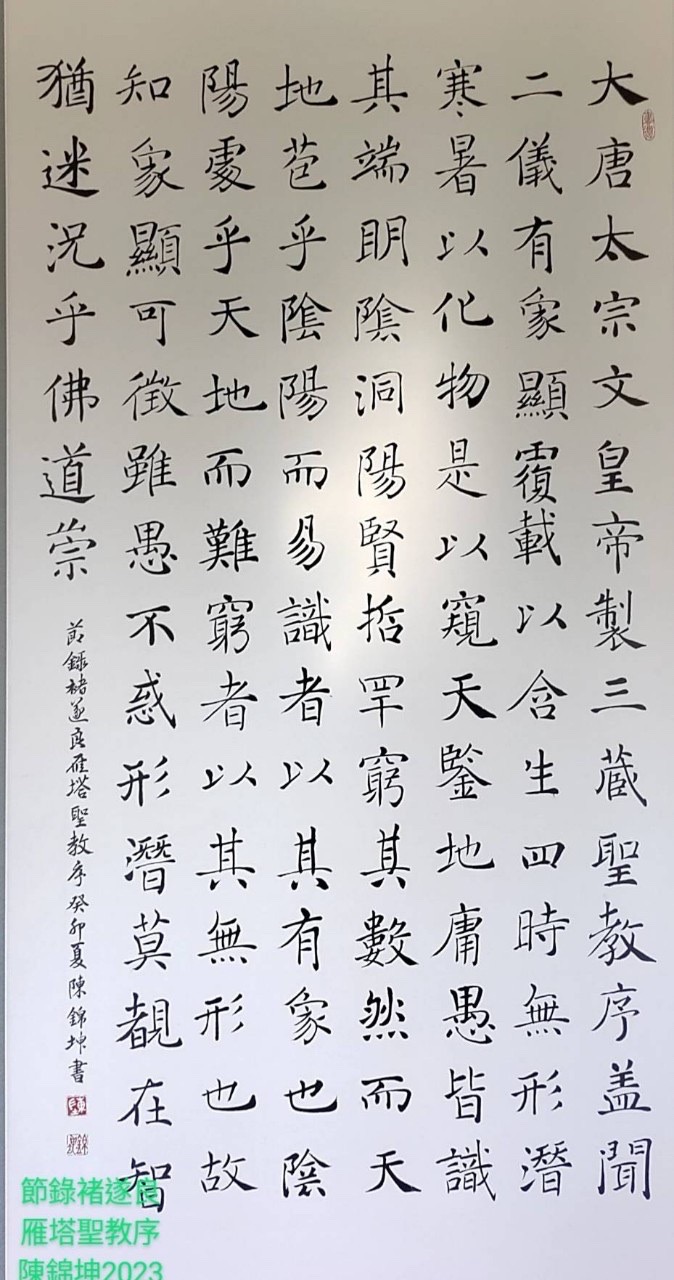 大唐太宗文皇帝製三蔵聖教序盖聞
二儀有象顯覆載以含生四時無形潛
寒暑以化物是以窺天鑒地庸愚皆識
其端明陰洞陽賢哲罕窮其數然而天
地苞乎陰陽而易識者以其有象也陰
陽處乎天地而難窮者以其無形也故
知象顯可徵雖愚不惑形潛莫覩在智
猶迷況乎佛道崇
節錄褚遂良雁塔聖教序癸卯夏陳錦坤書
節錄褚遂良
雁塔聖教序
陳錦坤2023